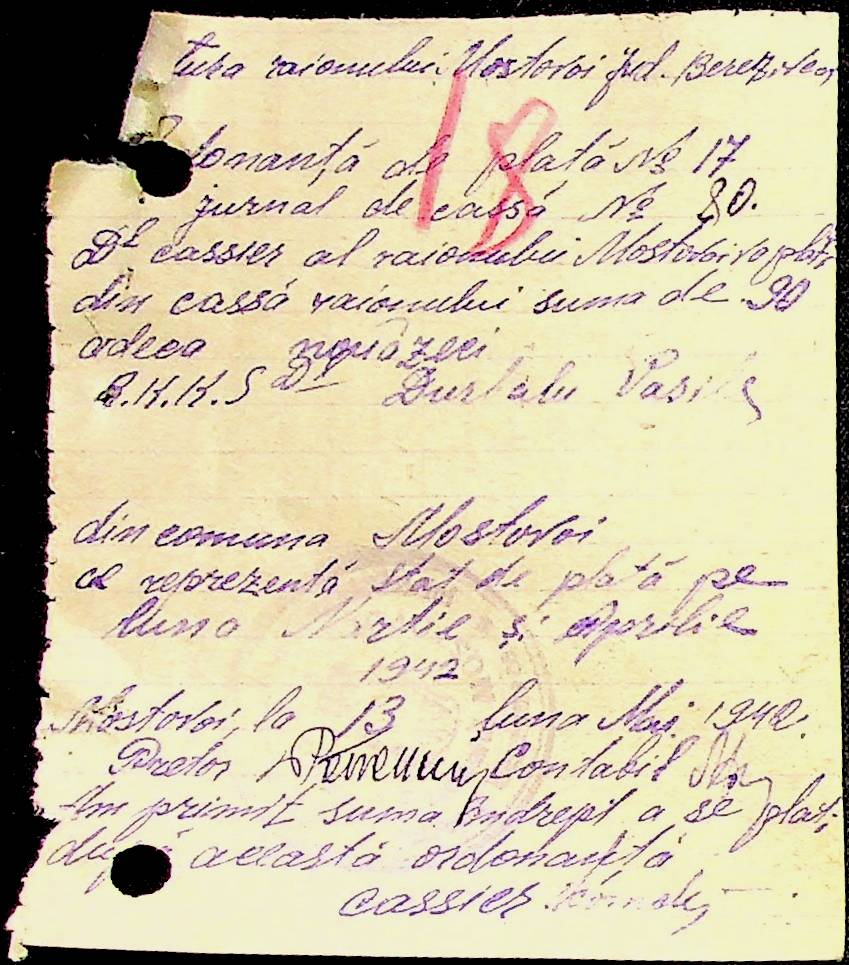 tura raionului Mostovoi jud. Berezovca
18
donanță de plată № 17
jurnal de cassă № 80.
Dl cassier al raionului Mostovoi va plăti
din cassa raionului suma de 90
adeca nouăzeci
R.K.K.S Dl Vasile
din comuna Mostovoi
ce reprezentă stat de plată pe
luna Martie și Aprilie
1942
Mostovoi, la 13 luna Mai 1942.
Pretor Contabil
Am primit suma îndrept a se plati
după această ordonanță
cassier